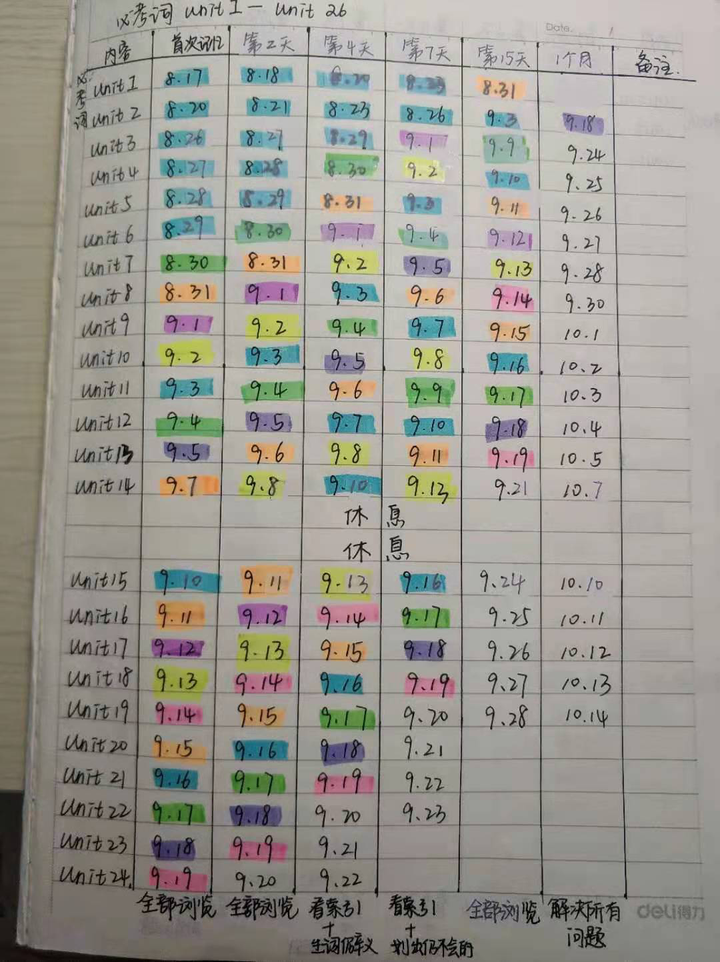 必考词 unit 1 — unit 26
Date.
内容 首次记忆 第2天 第4天 第7天 第15天 1个月 备注.
必考词
unit 1 8.17 8.18 8.20 8.23 8.31
unit 2 8.20 8.21 8.23 8.26 9.3 9.18
unit 3 8.26 8.27 8.29 9.1 9.9 9.24
unit 4 8.27 8.28 8.30 9.2 9.10 9.25
unit 5 8.28 8.29 8.31 9.3 9.11 9.26
unit 6 8.29 8.30 9.1 9.4 9.12 9.27
unit 7 8.30 8.31 9.2 9.5 9.13 9.28
unit 8 8.31 9.1 9.3 9.6 9.14 9.30
unit 9 9.1 9.2 9.4 9.7 9.15 10.1
unit 10 9.2 9.3 9.5 9.8 9.16 10.2
unit 11 9.3 9.4 9.6 9.9 9.17 10.3
unit 12 9.4 9.5 9.7 9.10 9.18 10.4
unit 13 9.5 9.6 9.8 9.11 9.19 10.5
unit 14 9.7 9.8 9.10 9.13 9.21 10.7
休息
休息
unit 15 9.10 9.11 9.13 9.16 9.24 10.10
unit 16 9.11 9.12 9.14 9.17 9.25 10.11
unit 17 9.12 9.13 9.15 9.18 9.26 10.12
unit 18 9.13 9.14 9.16 9.19 9.27 10.13
unit 19 9.14 9.15 9.17 9.20 9.28 10.14
unit 20 9.15 9.16 9.18 9.21
unit 21 9.16 9.17 9.19 9.22
unit 22 9.17 9.18 9.20 9.23
unit 23 9.18 9.19 9.21
unit 24. 9.19 9.20 9.22
全部浏览 全部浏览 看索引 看索引 全部浏览 解决所有 deli得力
+ + 问题
划出仍不会的